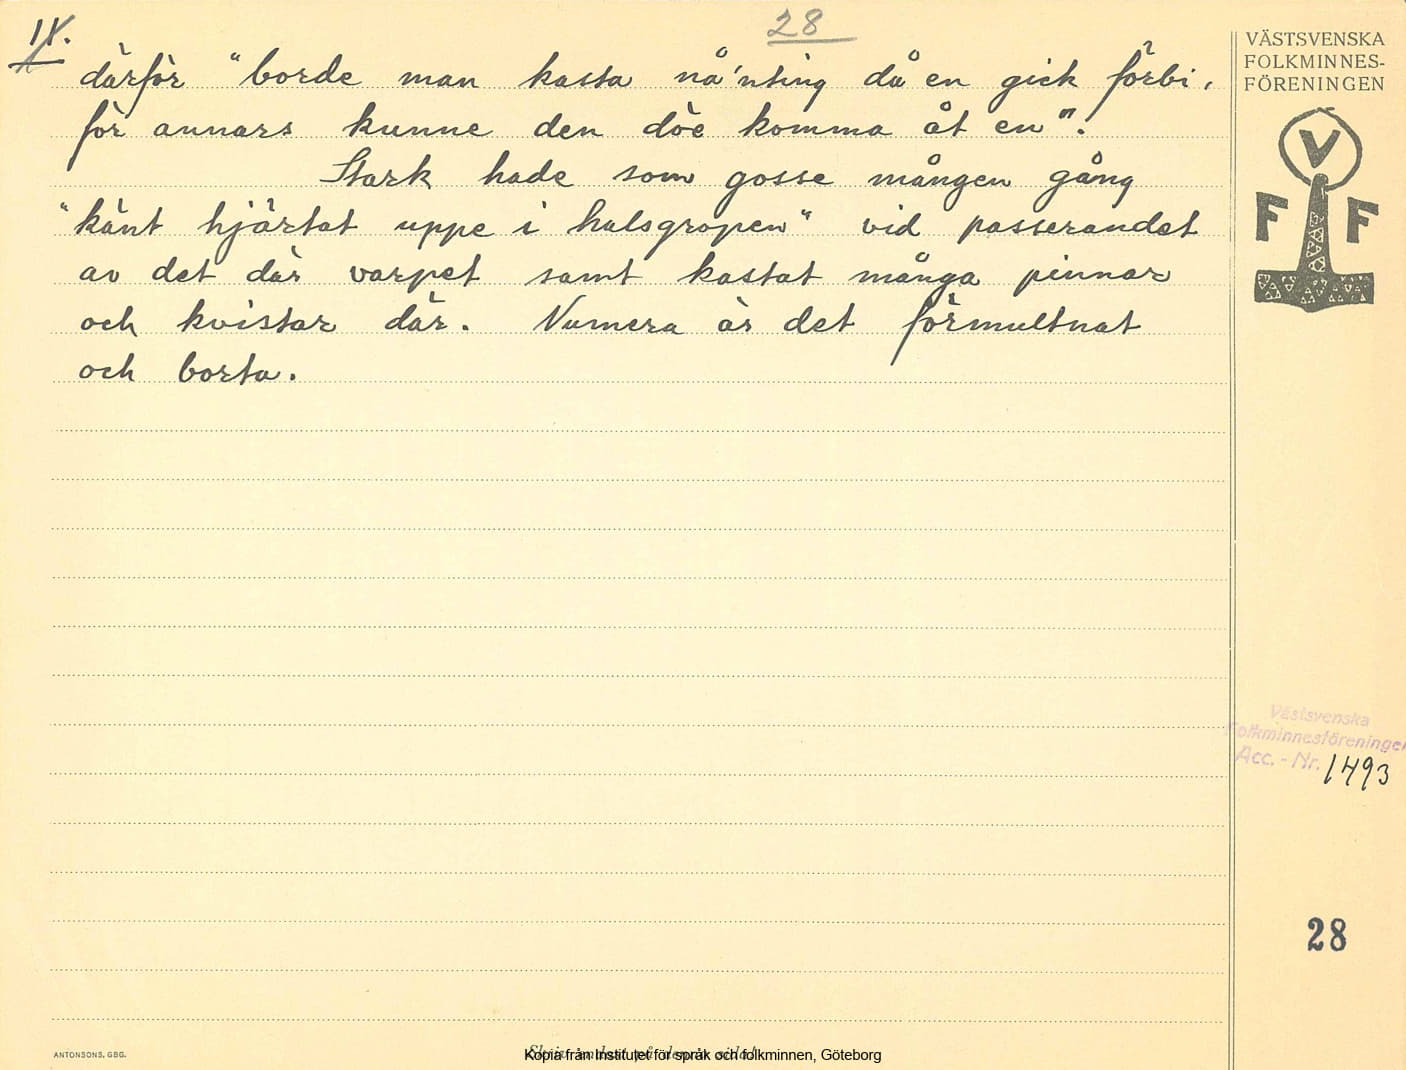 IX.
28
därför "borde man kasta nå'nting då en gick förbi,
för annars kunne den döe komma åt en".
Stark hade som gosse mången gång
"känt hjärtat uppe i halsgropen" vid passerandet
av det där varpet samt kastat många pinnar
och kvistar där. Numera är det förmultnat
och borta.
VÄSTSVENSKA
FOLKMINNES-
FÖRENINGEN
V
F F
Västsvenska
Folkminnesföreningen
Acc. - Nr. 1493
28
ANTONSONS, GBG.
Kopia från Institutet för språk och folkminnen, Göteborg